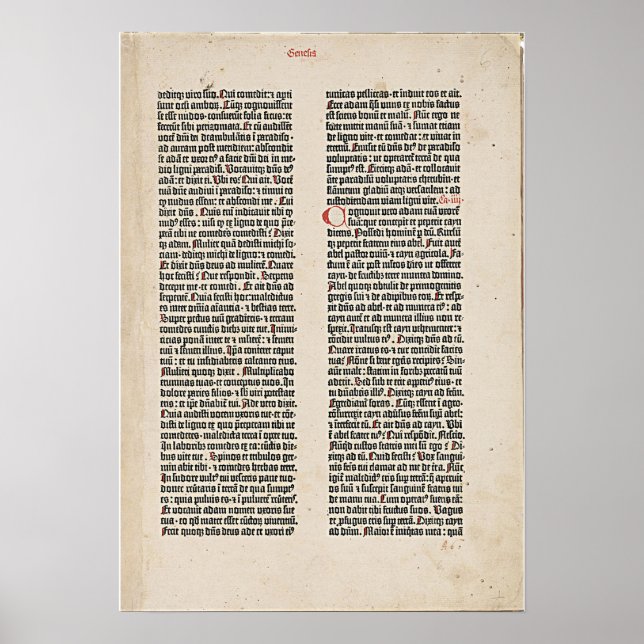 Genesis
deditq; viro suo. Qui comedit: et aperti
sunt oculi amboru. Cuq; cognovissent
se esse nudos: consuerut folia ficus: et
fecerut sibi perizomata. Et cu audissent
voce dni dei deambulatis i paradiso
ad auram post meridiem: abscondit
se ada et uxor ei' a facie dni dei in me-
dio ligni paradisi. Vocavitq; dns deus
ada: et dixit ei. Ubi es? Qui ait. Voce
tua dne audivi i paradiso: et timui eo
q nudus essem: et abscondi me. Cui
dixit dns. Quis eni indicavit tibi q
nud' esses: nisi q ex ligno de quo pce-
perā tibi ne comederes comedisti? Dixitq;
adam. Mulier quā dedisti michi so-
ciam: dedit michi de ligno: et comedi.
Et dixit dns deus ad muliere. Quare
hoc fecisti? Que respondit. Serpens
decepit me: et comedi. Et ait dns ad
serpente. Quia fecisti hoc: maledictus
es inter omia aiancia et bestias terre.
Super pectus tuu gradieris: et terram
comedes cunctis dieb3 vite tue. Inimi-
cicias ponā inter te et muliere: et semen
tuu et semen illius. Ipa conteret caput
tuu: et tu insidiaberis calcaneo eius.
Mulieri quoq; dixit. Multiplicabo
erumnas tuas: et conceptus tuos. In
dolore paries filios: et sub viri potestate
eris: et ipe dnabit tui. Ade vero dixit.
Quia audisti vocem uxoris tue: et cōe-
disti de ligno de quo pceperam tibi ne
comederes: maledicta terra in opere tuo.
In laborib3 comedes ex ea: cuctis die-
bus vite tue. Spinas et tribulos ger-
minabit tibi: et comedes herbas terre.
In sudore vult' tui vesceris pane tuo:
donec revertaris i terrā de qua sumpt'
es: quia pulvis es: et i pulvere reverteris.
Et vocavit adam nomen uxoris sue
eva: eo q mater esset cuctoru viventiu.
Fecit quoq; dns deus ade et uxori ei'
tunicas pelliceas: et induit eos et ait.
Ecce adam qsi unus ex nobis factus
est: sciens bonu et malu. Nuc ergo ne
forte mittat manu suā et sumat etiam
de ligno vite: et comedat: et vivat in
eternu. Emisit eu dns de' de paradiso
voluptatis: ut operaret terrā de qua
sumpt' est. Eiecitq; adā: et collocavit
ante paradisu voluptatis cherubin: et
flammeu gladiu atq; versatilem: ad
custodiendam viam ligni vite. Ca. iiij.
Cognovit vero adam uxorē
suā: que concepit et peperit cayn
dicens. Possedi hominē p deu. Rursuq;
peperit fratrem eius abel. Fuit autē
abel pastor oviu: et cayn agricola. Fa-
ctum ē aut post multos dies ut offerret
cayn de fructib3 terre munera domino.
Abel quoq; obtulit de primogenitis
gregis sui et de adipibus eoru. Et respe-
xit dns ad abel: et ad munera eius: ad
cayn vero et ad munera illius non re-
spexit. Iratusq; est cayn vehementer: et
cōcidit vultus ei'. Dixitq; dns ad eu.
Quare iratus es: et cur concidit facies
tua? Nōne si bene egeris recipies? Sin
aut male: statim in foribs peccatu tuu
aderit. Sed sub te erit appetit' eius: et
tu dnaberis illi'. Dixitq; cayn ad abel
fratrem suu. Egrediamur foras.
Et ait dns ad cayn. Ubi
ē abel frater tu'? Qui respōdit. Nescio.
Nuqd custos fratris mei su ego? Di-
xitq; ad eu. Quid fecisti? Vox sangui-
nis fris tui clamat ad me de terra. Nuc
igit maledict' eris sup terrā: que aperuit
os suu et suscepit sanguinē fratris tui
de manu tua. Cum operat' fueris eā:
non dabit tibi fructus suos. Vagus
et pfugus eris sup terrā. Dixitq; cayn
ad dnm. Maior ē iniqtas mea: quā